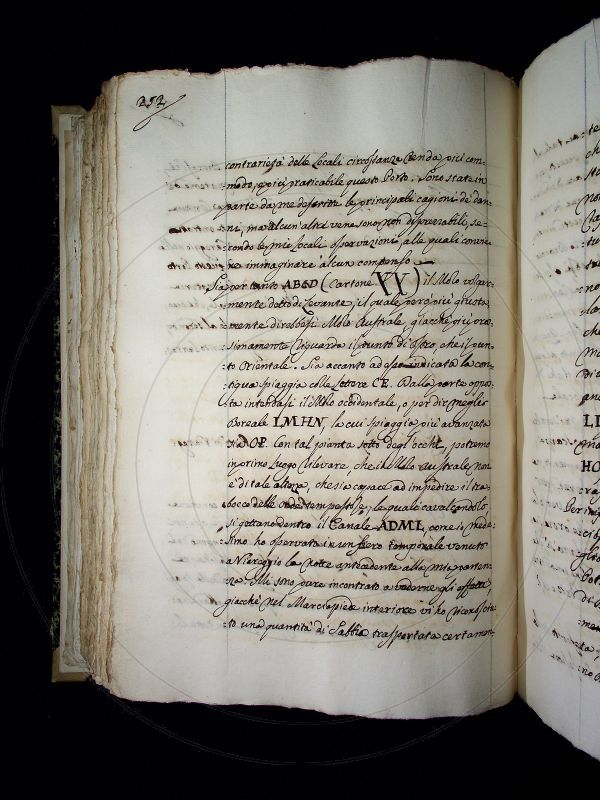 252
contrarietà delle Locali circostanze Renda più com-
:modo, e più praticabile questo Porto. Sono state in
:parte da me deferitte le principali cagioni de' dan-
:ni, ma alcun' altre ve ne sono non disprezabili, se-
:condo le mie locali osservazioni, alle quali convie-
:ne immaginare alcun compenso
Sia per tanto ABGD (Cartone XX) il Molo volgar-
:mente detto di Levante, il quale però più giusta
:mente direbbesi Molo Australe, giacchè più pros
:simamente Riguarda il punto di Ostro, che il pun-
:to Orientale. Sia accanto ad esso indicata la con-
:tigua spiaggia colle lettere CE. Dalla parte oppos
:ta intendasi il Molo occidentale, o per dir meglio
Boreale LMHN, la cui spiaggia più avanzata
sia OP. Con tal pianta sotto degl'occhi, potremo
in primo luogo Rilevare, che il Molo Australe non
è di tale altezza, che sia capace ad impedire il tra-
:bocco delle onde tempestose, le quali cavalcandolo,
si gettano dentro il Canale ADML, come io mede-
:simo ho osservato in un fiero temporale venuto
a Viareggio la notte antecedente alla mia parten-
:za. Mi sono pure incontrato a vederne gli effetti,
giacchè nel Marciapiede interiore vi ho riconosciu-
:to una quantità di Sabbia trasportata certamen-
LI
HO